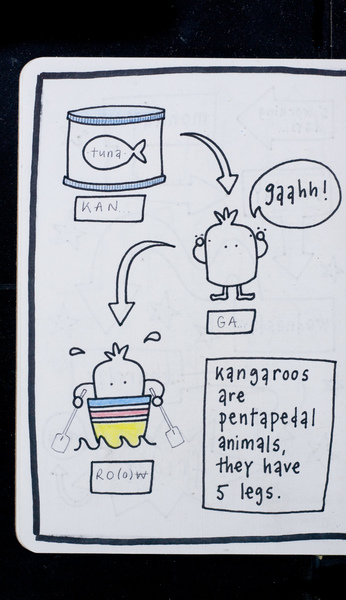 tuna
KAN...
gaahh!
GA..
RO(O)W
kangaroos
are
pentapedal
animals,
they have
5 legs.